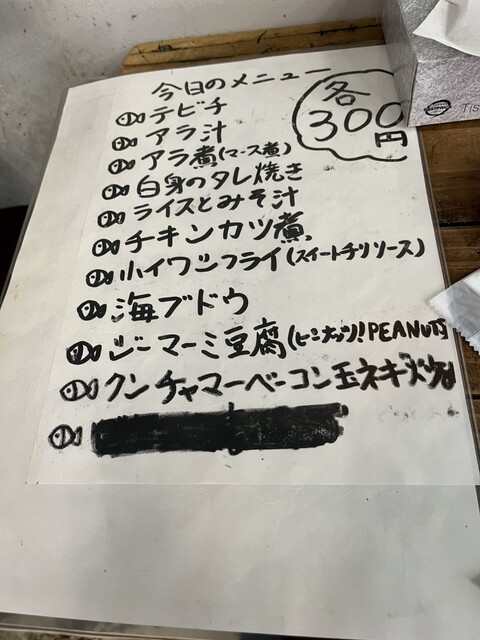 今日のメニュー
各
300
円
テビチ
アラ汁
アラ煮(マース煮)
白身のタレ焼き
ライスとみそ汁
チキンカツ煮
小イワシフライ(スイートチリソース)
海ブドウ
ジーマーミ豆腐(ピーナッツ!PEANUTS
クンチャマーベーコン玉ネギ
Tis